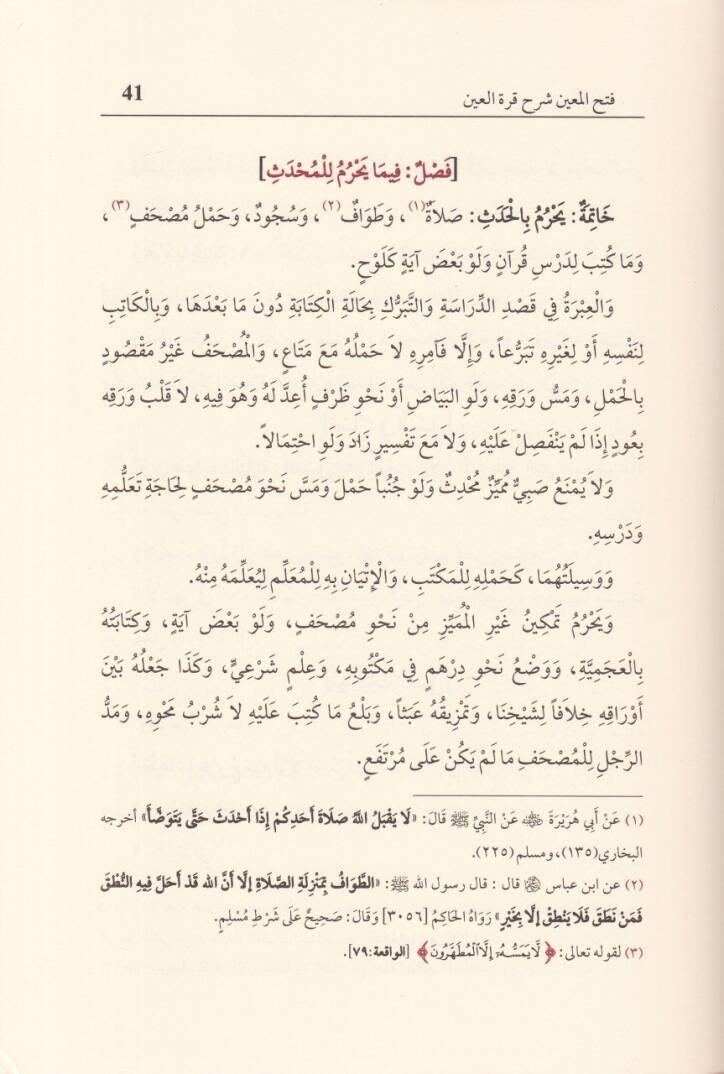 فتح المعين شرح قرة العين
41
[فَصْلٌ: فِيمَا يَحْرُمُ لِلْمُحْدَثِ]
خَاتِمَةٌ: يَحْرُمُ بِالْحَدَثِ: صَلاَةٌ(١)، وَطَوَافٌ(٢)، وَسُجُودٌ، وَحَمْلُ مُصْحَفٍ(٣)،
وَمَا كُتِبَ لِدَرْسِ قُرآنٍ وَلَوْ بَعْضَ آيَةٍ كَلَوْحٍ.
وَالْعِبْرَةُ فِي قَصْدِ الدِّرَاسَةِ وَالتَّبَرُّكِ بِحَالَةِ الْكِتَابَةِ دُونَ مَا بَعْدَهَا، وَبِالْكَاتِبِ
لِنَفْسِهِ أَوْ لِغَيْرِهِ تَبَرُّعاً، وَإِلَّا فَآمِرِهِ لاَ حَمْلُهُ مَعَ مَتَاعٍ، وَالْمُصْحَفُ غَيْرُ مَقْصُودٍ
بِالْحَمْلِ، وَمَسُّ وَرَقِهِ، وَلَوِ البَيَاضِ أَوْ نَحْوِ ظَرْفٍ أُعِدَّ لَهُ وَهُوَ فِيهِ، لاَ قَلْبُ وَرَقِهِ
بِعُودٍ إِذَا لَمْ يَنْفَصِلْ عَلَيْهِ، وَلاَ مَعَ تَفْسِيرٍ زَادَ وَلَوِ احْتِمَالاً.
وَلاَ يُمْنَعُ صَبِيٌّ مُمَيِّزٌ مُحْدِثٌ وَلَوْ جُنُباً حَمْلَ وَمَسَّ نَحْوَ مُصْحَفٍ لِحَاجَةِ تَعَلُّمِهِ
وَدَرْسِهِ.
وَوَسِيلَتُهُمَا، كَحَمْلِهِ لِلْمَكْتَبِ، وَالْإِتْيَانِ بِهِ لِلْمُعَلِّمِ لِيُعَلِّمَهُ مِنْهُ.
وَيَحْرُمُ تَمْكِينُ غَيْرِ الْمُمَيِّزِ مِنْ نَحْوِ مُصْحَفٍ، وَلَوْ بَعْضَ آيَةٍ، وَكِتَابَتُهُ
بِالْعَجَمِيَّةِ، وَوَضْعُ نَحْوِ دِرْهَمٍ فِي مَكْتُوبِهِ، وَعِلْمٍ شَرْعِيٍّ، وَكَذَا جَعْلُهُ بَيْنَ
أَوْرَاقِهِ خِلَافاً لِشَيْخِنَا، وَتَمْزِيقُهُ عَبَثاً، وَبَلْعُ مَا كُتِبَ عَلَيْهِ لاَ شُرْبُ مَحْوِهِ، وَمَدُّ
الرِّجْلِ لِلْمُصْحَفِ مَا لَمْ يَكُنْ عَلَى مُرْتَفَعٍ.
(١) عَنْ أَبِي هُرَيْرَةَ ﷺ عَنْ النَّبِيِّ ﷺ قَالَ: «لَا يَقْبَلُ اللَّهُ صَلَاةَ أَحَدِكُمْ إِذَا أَحْدَثَ حَتَّى يَتَوَضَّأَ» أخرجه
البخاري(١٣٥)، ومسلم (٢٢٥).
(٢) عن ابن عباس قال : قال رسول الله ﷺ: «الطَّوَافُ بِمَنْزِلَةِ الصَّلَاةِ إِلَّا أَنَّ الله قَدْ أَحَلَّ فِيهِ النُّطْقَ
فَمَنْ نَطَقَ فَلَا يَنْطِقْ إِلَّا بِخَيْرٍ» رَوَاهُ الحَاكِمُ [٣٠٥٦] وَقَالَ: صَحِيحٌ عَلَى شَرْطِ مُسْلِمٍ.
(٣) لقوله تعالى: ﴿ لَّا يَمَسُّهُۥٓ إِلَّا ٱلْمُطَهَّرُونَ ﴾ [الواقعة:٧٩].